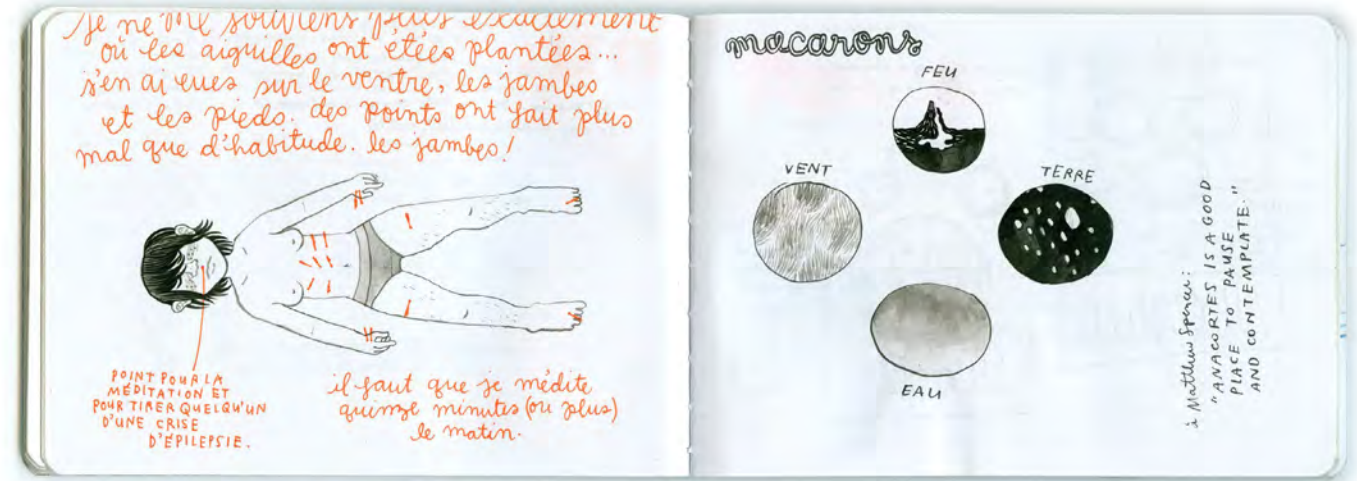 je ne me souviens plus exactement
où les aiguilles ont étées plantées...
j'en ai eues sur le ventre, les jambes
et les pieds. des points ont fait plus
mal que d'habitude. les jambes!
POINT POUR LA
MÉDITATION ET
POUR TIRER QUELQU'UN
D'UNE CRISE
D'ÉPILEPSIE.
il faut que je médite
quinze minutes (ou plus)
le matin.
macarons
FEU
VENT
TERRE
EAU
à Matthew Spencer:
"ANACORTES IS A GOOD
PLACE TO PAUSE
AND CONTEMPLATE."